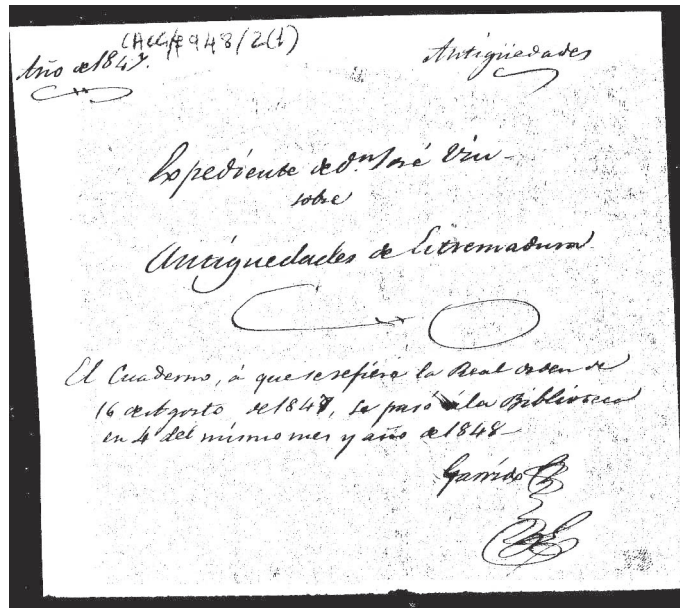 CACC/9948/2(1)
Año de 1847.
Antigüedades
Expediente de Dn José Viu
sobre
Antiguedades de Extremadura
El Cuaderno, á que se refiere la Real orden de
16 de Agosto de 1847, se pasó a la Biblioteca
en 4 del mismo mes y año de 1848
Garrido